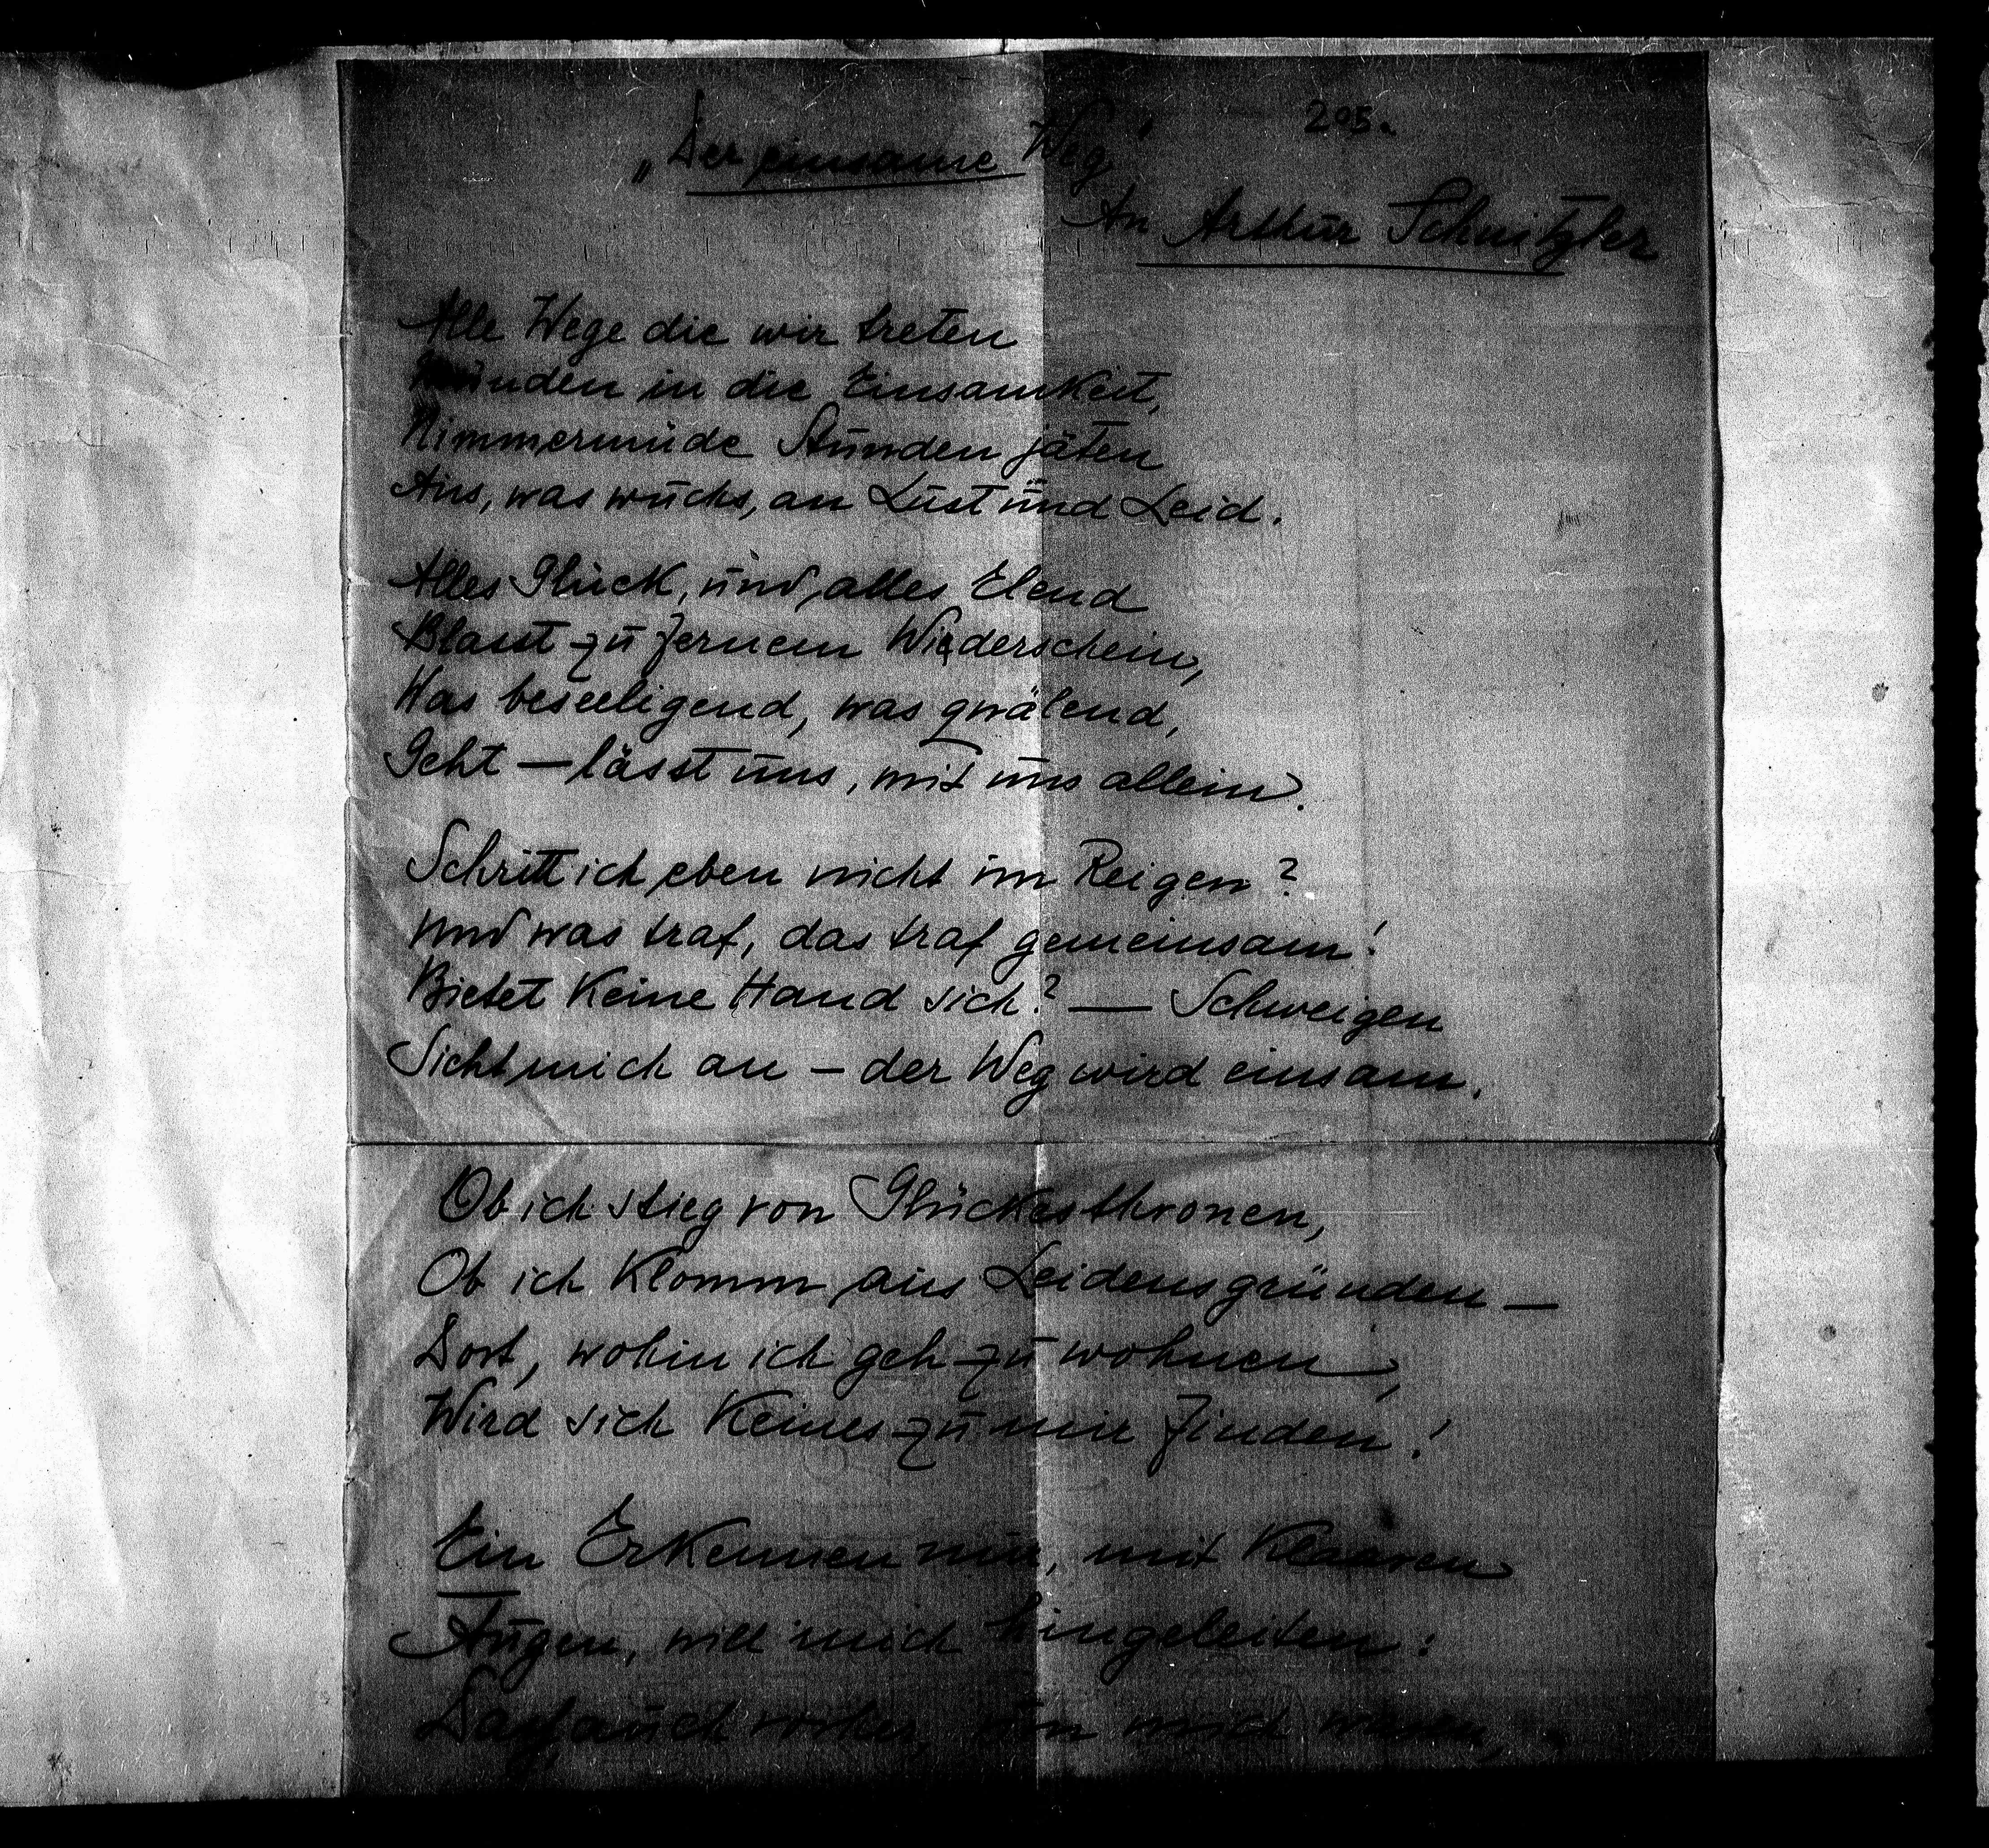 205.
„Der einsame Weg"
An Arthur Schnitzler
Alle Wege die wir treten
Münden in die Einsamkeit,
Nimmermüde Stunden jäten
Aus, was wuchs, an Lust und Leid.
Alles Glück, und alles Elend
Blasst zu fernem Wiederschein,
Was beseeligend, was quälend,
Geht — lässt uns, mit uns allein.
Schritt ich eben nicht im Reigen?
Und was traf, das traf gemeinsam!
Bietet keine Hand sich? — Schweigen
Sieht mich an — der Weg wird einsam.
Ob ich stieg von Glückesthronen,
Ob ich klomm aus Leidensgründen —
Dort, wohin ich geh zu wohnen,
Wird sich Keines zu mir finden!
Ein Erkennen nur, mit klaaren
Augen, will mich hingeleiten:
Dass auch vorher, um mich waren,